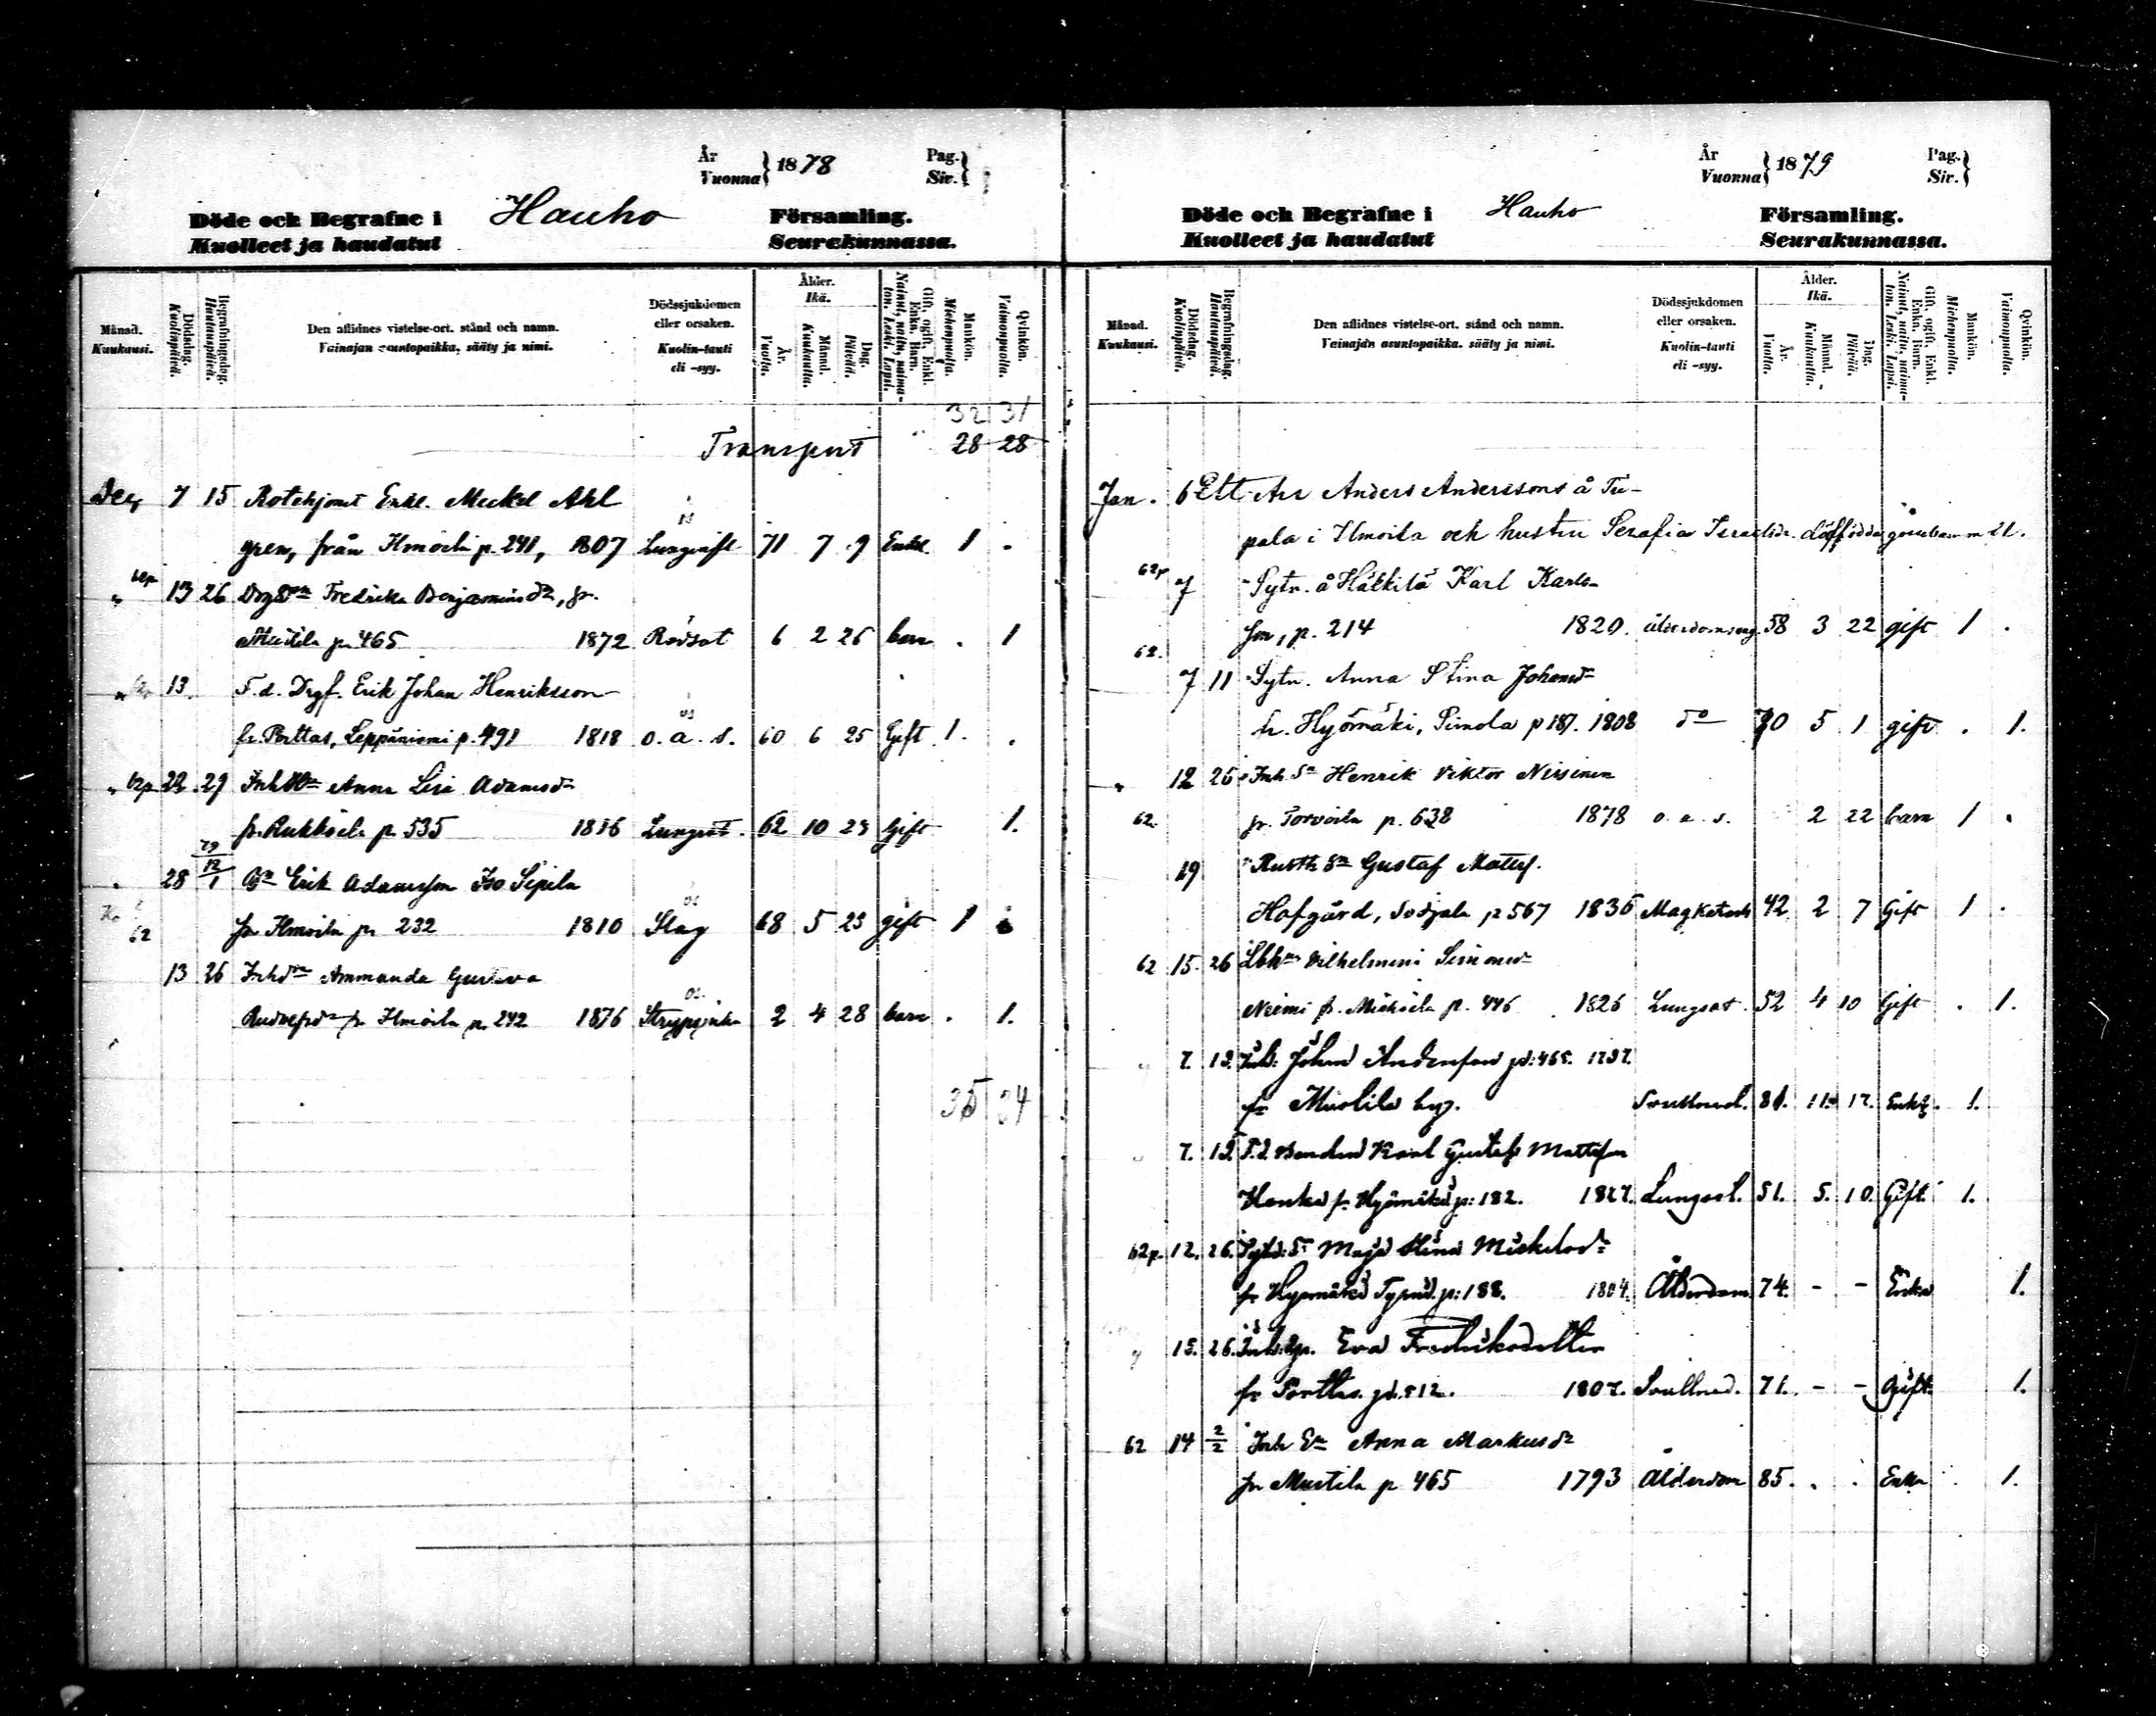 År
Vuonna } 1878
Pag.
Sir. }
Döde och Begrafne i Hauho Församling.
Kuolleet ja haudatut Seurakunnassa.
Månad.
Kuukausi.
Dödsdag.
Kuolinpäivä.
Begrafningsdag.
Hautauspäivä.
Den aflidnes vistelse-ort. stånd och namn.
Vainajan asuntopaikka, sääty ja nimi.
Dödssjukdomen
eller orsaken.
Kuolin-tauti
eli -syy.
Ålder.
Ikä.
År.
Vuotta.
Månad.
Kuukautta.
Dag.
Päivää.
Gift, ogift, Enkl.
Enka, Barn.
Nainut, naitu, naima-
ton. Leski. Lapsi.
Mankön.
Miehenpuolta.
Qvinkön.
Vaimonpuolta.
32 31
Transport 28 28
Dec 7 15 Rotehjonet Enkl. Mickel Ahl
gren, från Ilmoila p. 241, 1807 71 7 9 Enkl 1 .
" 13 26 Fredrika Benjaminsdr, fr.
Mustila p 465 1872 Rödsot 6 2 25 barn . 1
" 13. F.d. Drgf. Erik Johan Henriksson
fr. Porttas, Leppäniemi p. 491 1818 o. a. s. 60 6 25 Gift 1. .
" 62p 22 29 Anna Lisa Adamsdr
fr. p 535 1816 Lungsot. 62 10 23 Gift 1.
29/12
" 28 1 Erik Adamsson Iso Sipila
62 fr Ilmoila p. 232 1810 Slag 68 5 23 gift 1
13 26 Inhdr Ammanda Gustava
fr Ilmoila p. 242 1876 Strypsjuka 2 4 28 barn . 1.
35 34
År
Vuonna } 1879
Pag.
Sir. }
Döde och Begrafne i Hauho Församling.
Kuolleet ja haudatut Seurakunnassa.
Månad.
Kuukausi.
Dödsdag.
Kuolinpäivä.
Begrafningsdag.
Hautauspäivä.
Den aflidnes vistelse-ort. stånd och namn.
Vainajan asuntopaikka. sääty ja nimi.
Dödssjukdomen
eller orsaken.
Kuolin-tauti
eli -syy.
Ålder.
Ikä.
År.
Vuotta.
Månad.
Kuukautta.
Dag.
Päivää.
Gift, ogift, Enkl.
Enka, Barn.
Nainut, naitu, naima-
ton. Leski. Lapsi.
Mankön.
Miehenpuolta.
Qvinkön.
Vaimonpuolta.
Jan. 6 Ett Arr Anders Anderssons å Tu-
pala i Ilmoila och hustru Serafia Israelsdr. dödfödda gossebarn
62p 7 Sytn. å Häkkilä Karl Karls-
son, p. 214 1820. ålderdomssvag. 58 3 22 gift 1 .
62. 7 11 Sytn. Anna Stina Johansdr
fr. Hyömäki, Simola p 187. 1808 do 70 5 1 gift . 1.
" 12 26 Inh Sn Henrik Viktor Nissinen
62. fr. Torvoila p. 638 1878 o. a. s. 2 22 barn 1 .
19 Gustaf Mattss.
Hofgård, Sotjala p 567 1836 Magkatarr 42 2 7 Gift 1 .
62 15. 26 Vilhelmina Simonsdr
Niemi fr. p. 446 1826 Lungsot. 52 4 10 Gift . 1.
7. 12. Inh: Johan Andersson pd: 465. 1797.
fr Mustila by. 81. 11. 17. Enkl. 1.
7. 12. F.d. Bonden Karl Gustaf Mattsson
fr. Hyömäki p: 182. 1827. Lungsot. 51. 5. 10. Gift 1.
62p. 12. 26. Maja Stina Mickelsdr
fr Hyömäki p: 188. 1804. Ålderdom 74. - - Enka 1.
15. 26. Eva Fredriksdotter
fr Porttas. pd. 512. 1807. 71. - - Gift. 1.
62 14 2/2 Inh En Anna Markusdr
fr Mustila p 465 1793 Ålderdom 85. . . Enka . 1.